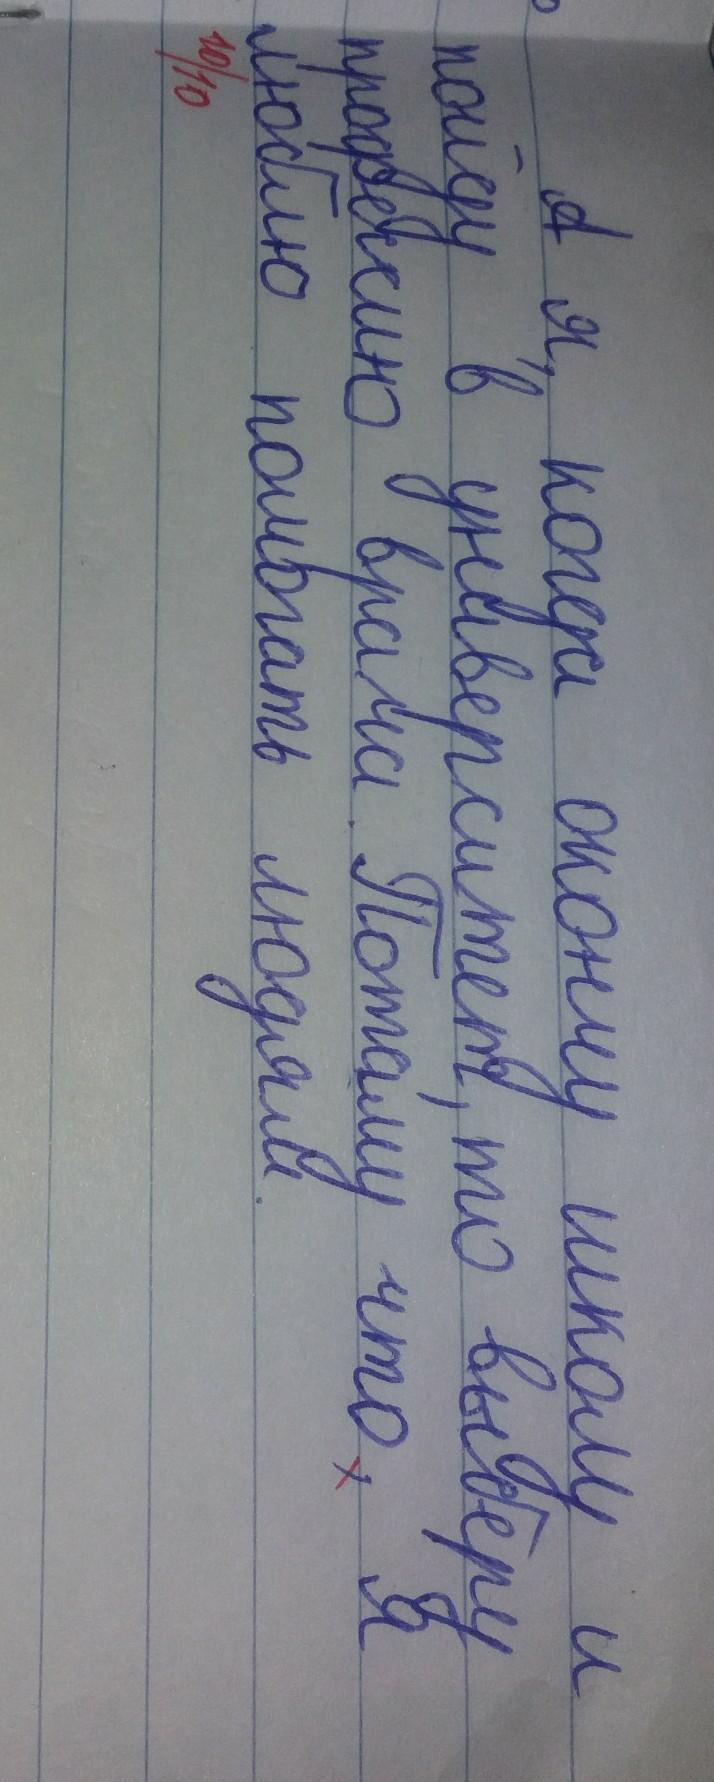 А я, когда окончу школу и
пойду в унаверситет, то выберу
професслию врача. Потаму что, Я
люблю помогать людям.
10/10